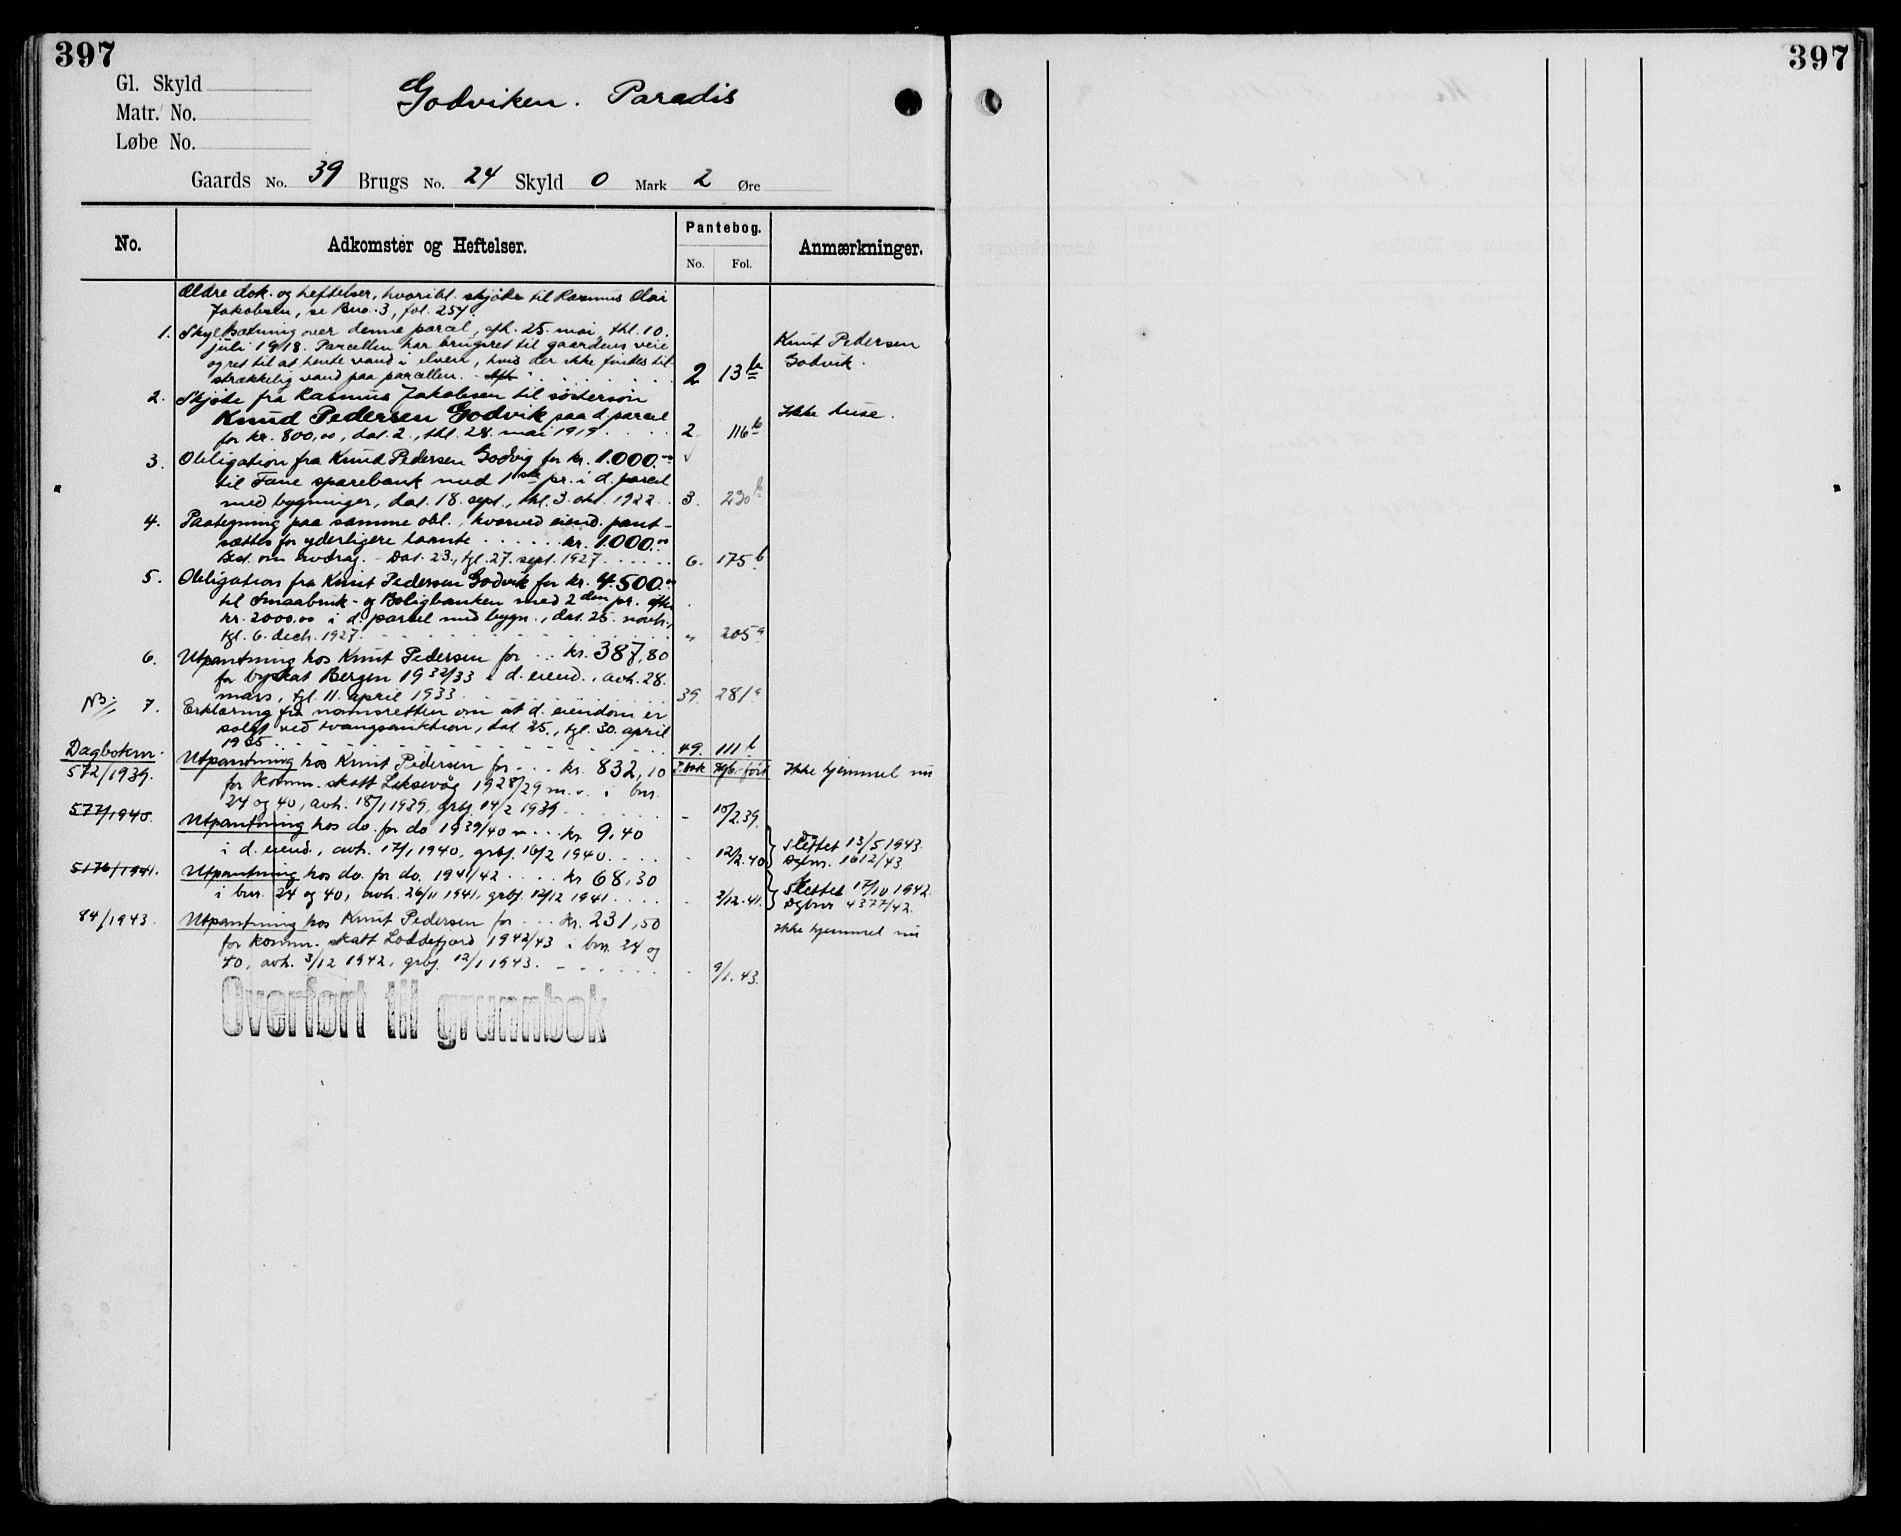 397
397
Gl. Skyld
Matr. No.
Løbe No.
Godviken. Paradis
Gaards No. 39 Brugs No. 24 Skyld 0 Mark 2 Øre
No. Adkomster og Heftelser. Pantebog. Anmærkninger.
No. Fol.
Ældre dok. og heftelser, hvoribl. skjøte til Rasmus Olai
Jakobsen, se Bno. 3, fol. 257.
1. Skyldsætning over denne parcel, afh. 25. mai, thl. 10.
juli 1918. Parcellen har brugsret til gaardens veie Knut Pedersen
og ret til at hente vand i elven, hvis der ikke findes til- Godvik.
strækkelig vand paa parcellen. 2 13 b
2. Skjøte fra Rasmus Jakobsen til søstersøn
Knud Pedersen Godvik paa d. parcel Ikke huse.
for kr. 800,00, dat. 2., thl. 28. mai 1919 2. 116 b
3. Obligation fra Knut Pedersen Godvig for kr. 1.000.00
til Fane sparebank med 1ste pr. i d. parcel
med bygninger, dat. 18. sept., thl. 3. okt. 1922 3. 230 b
4. Paategning paa samme obl., hvorved eiend. pant-
sættes for yderligere laante kr. 1000.00
Best. om avdrag. - Dat. 23., tgl. 27. sept. 1927 6. 175 b
5. Obligation fra Knut Pedersen Godvik for kr. 4.500.00
til Smaabruk- og Boligbanken med 2den pr. efter
kr. 2000.00 i d. parcel med bygn., dat. 25. novb.,
tgl. 6. decb. 1927. " 205 a
6. Utpantning hos Knut Pedersen for kr. 387,80
for byskat Bergen 1932/33 i d. eiend., avh. 28.
mars, tgl. 11. april 1933 39. 281 a
NB 7. Erklæring fra namsretten om at d. eiendom er
solgt ved tvangsauktion, dat. 25., tgl. 30. april
1935 49. 111 b
Dagboknr.
572/1939. Utpantning hos Knut Pedersen for kr. 832,10 Ikke hjemmel nu
for komm. skatt Laksevåg 1928/29 m.v. i bnr.
24 og 40, avh. 18/1 1939, grbf. 14/2 1939 - 10/2.39.
577/1940. Utpantning hos do. for do 1939/40 kr. 9.40
i d. eiend., avh. 17/1 1940, grbf. 16/2 1940 - 12/2.40
slettet 13/5 1943.
Dgbnr. 1612/43.
5176/1941. Utpantning hos do. for do. 1941/42 kr 68,30
i bnr. 24 og 40, avh. 26/11 1941, grbf. 12/12 1941 - 3/12.41.
Slettet 17/10 1942.
Dgbnr 4377/42.
84/1943. Utpantning hos Knut Pedersen for kr. 231,50 Ikke hjemmel nu
for komm. skatt Loddefjord 1942/43 i bnr. 24 og
40, avh. 3/12 1942, grbf. 12/1 1943. - 9/1.43.
Overført til grunnbok